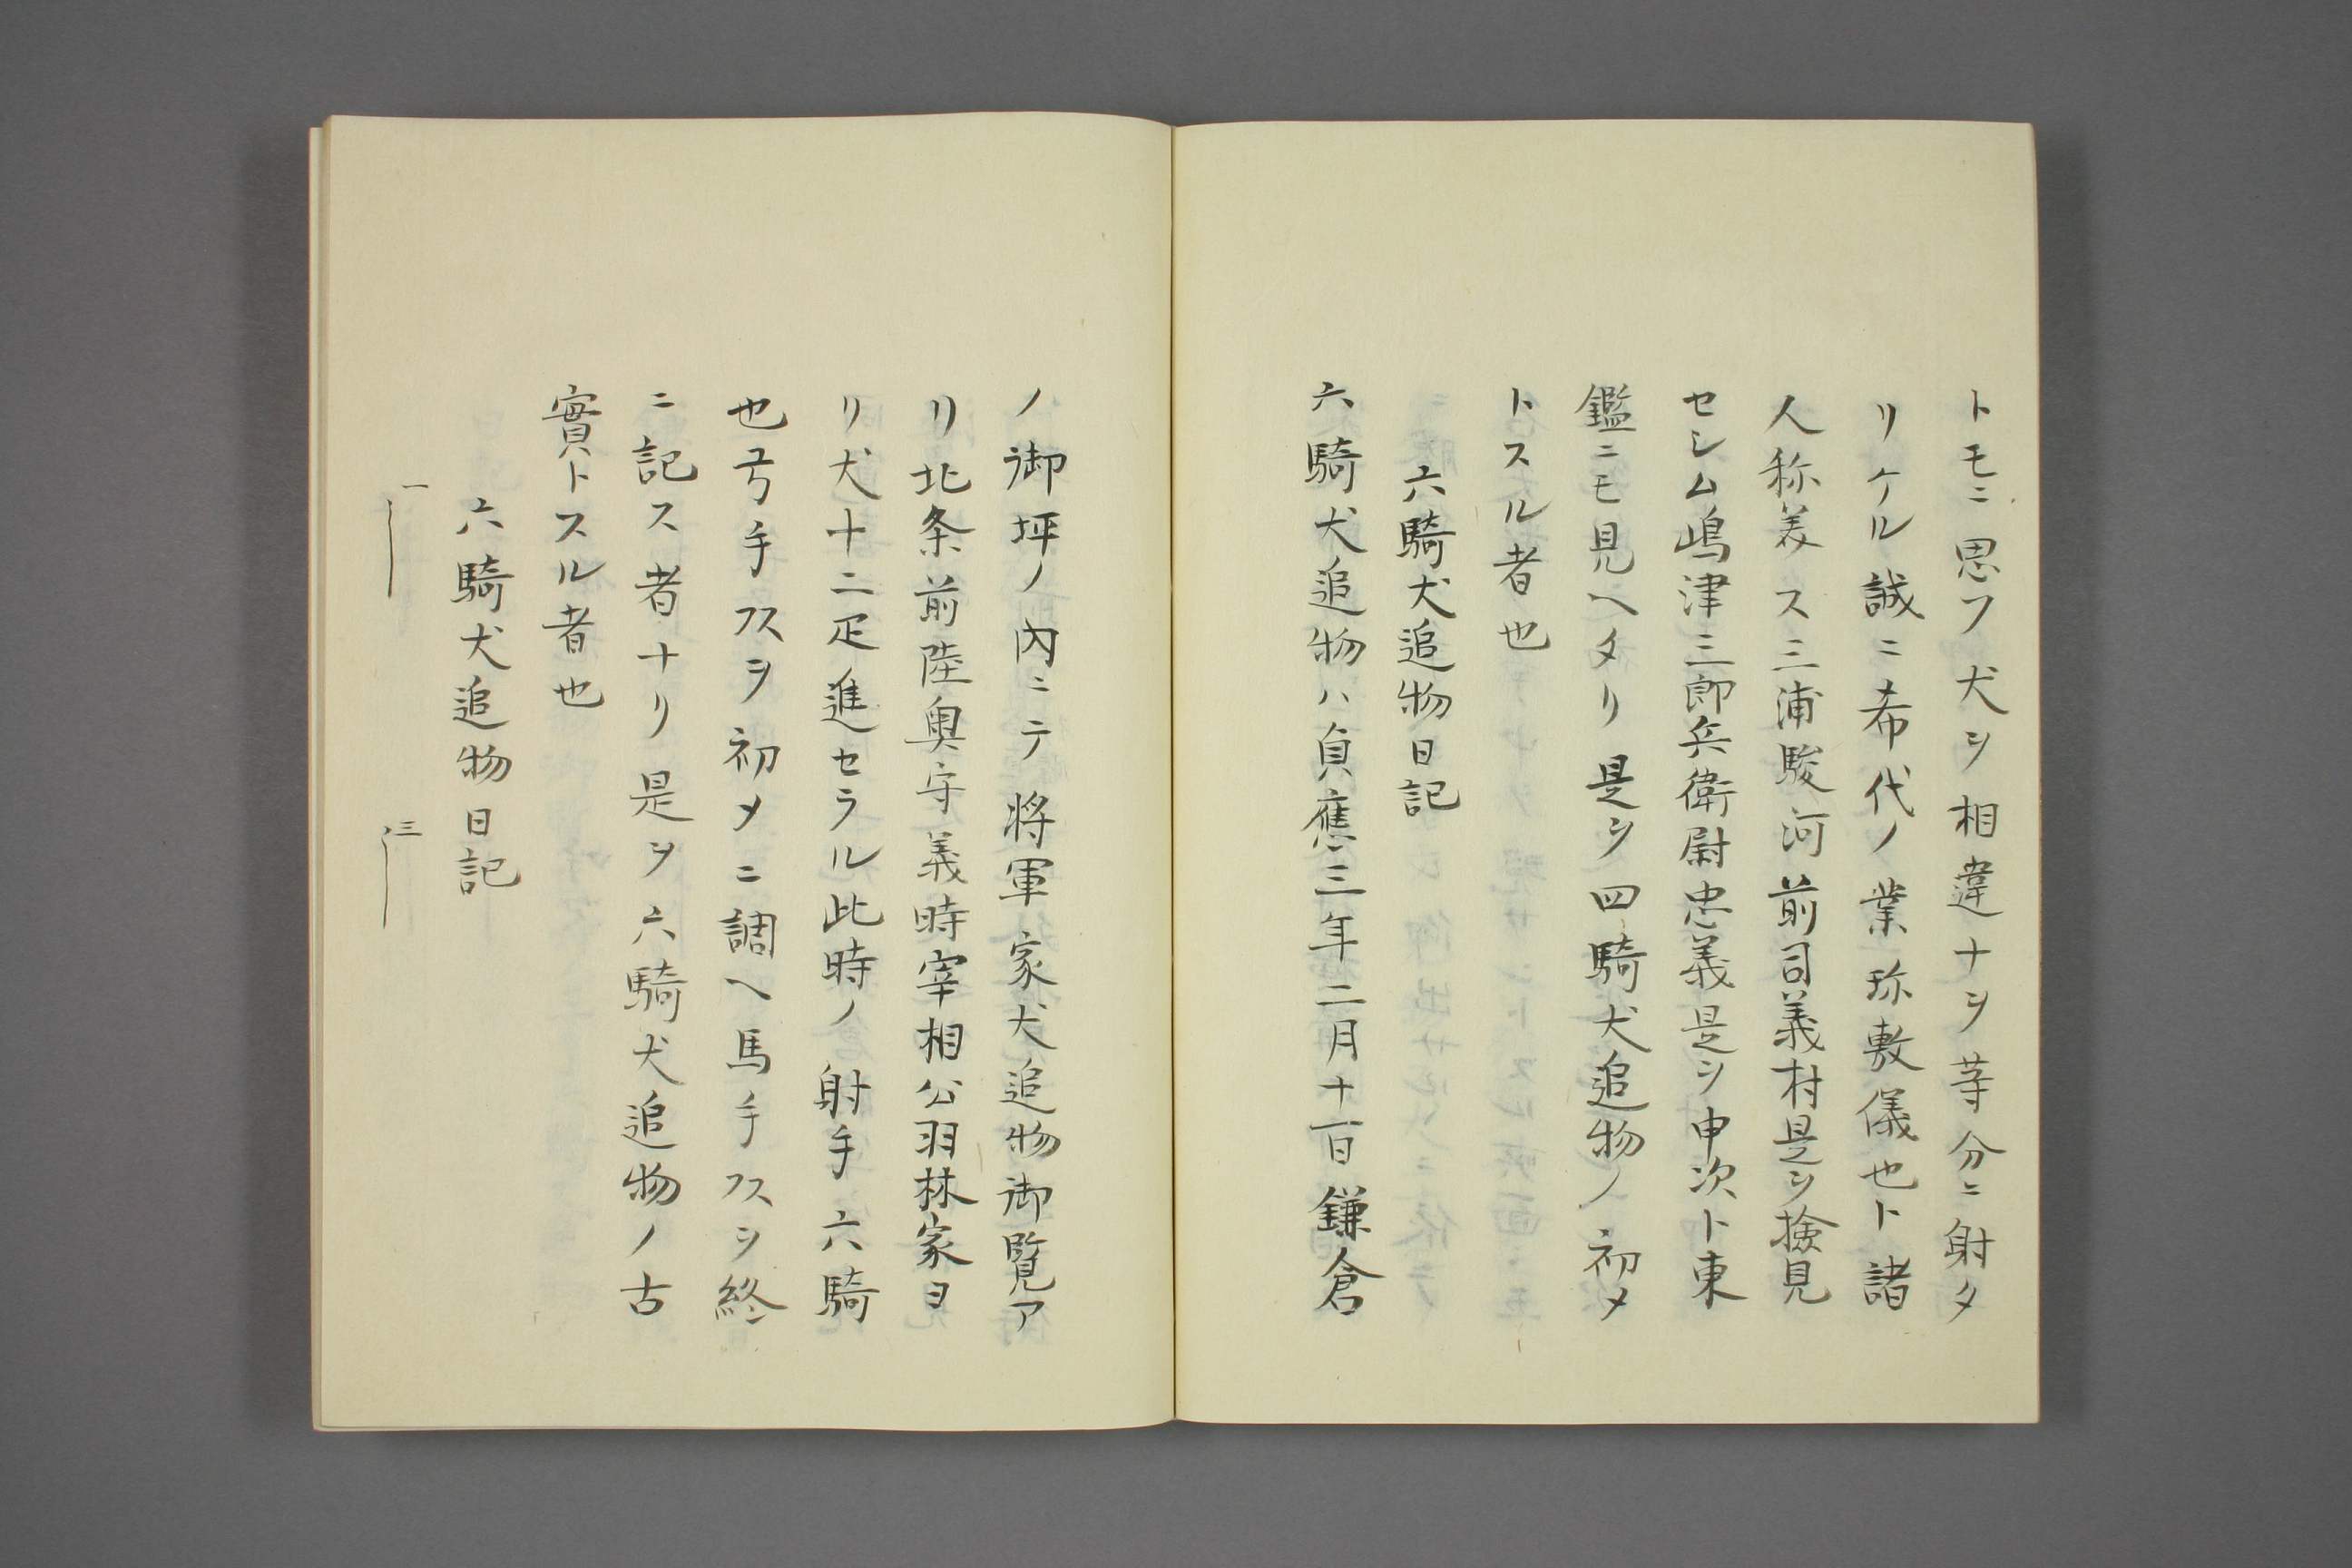 トモニ思フ犬ヲ相違ナヲ䒭分ニ射タ
リケル誠ニ希代ノ業珎敷儀也ト諸
人称美ス三浦駿河前司義村是ヲ撿見
セシム嶋津三郎兵衛尉忠義是ヲ申次ト東
鑑ニモ見ヘタリ是ヲ四騎犬追物ノ初メ
トスル者也
六騎犬追物日記
六騎犬追物ハ貞應三年二月十一日鎌倉
ノ御坪ノ内ニテ将軍家犬追物御覧ア
リ北条前陸奥守義時宰相公羽林家ヨ
リ犬十二疋進セラル此時ノ射手六騎
也弓手スヲ初メニ調ヘ馬手スヲ終
ニ記ス者ナリ是ヲ六騎犬追物ノ古
實トスル者也
六騎犬追物日記
一 三